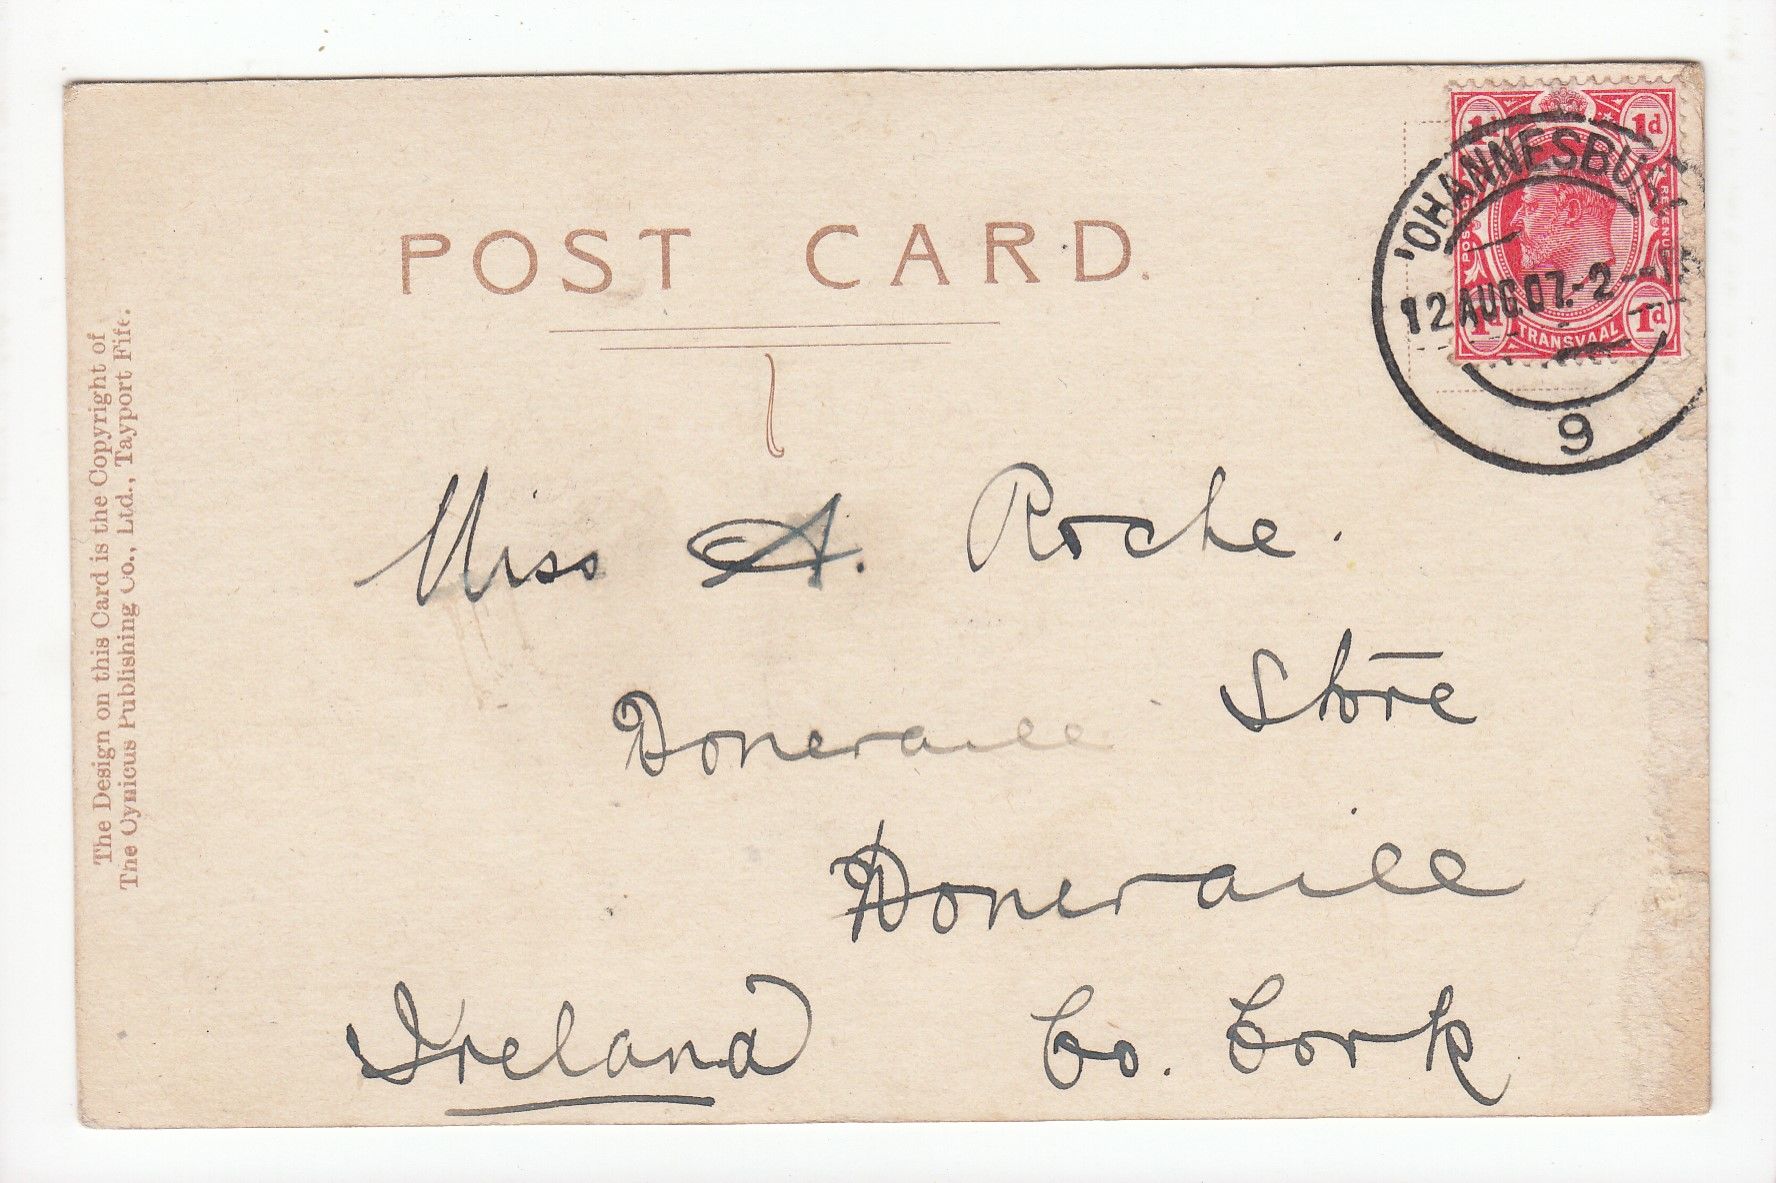 POST CARD.
1d 1d
JOHANNESBUR
12 AUG 07.-2--
1d 1d
TRANSVAAL
9
The Design on this Card is the Copyright of
The Cynicus Publishing Co., Ltd., Tayport Fife.
Miss A. Roche.
Doneraile Store
Doneraile
Ireland Co. Cork